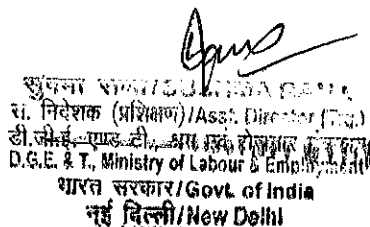 स. निदेशक (प्रशिक्षण)/Asst. Director (Trg.)
डी.जी.ई. एण्ड टी., श्रम एवं रोजगार मंत्रालय
D.G.E. & T., Ministry of Labour & Employment
भारत सरकार/Govt. of India
नई दिल्ली/New Delhi